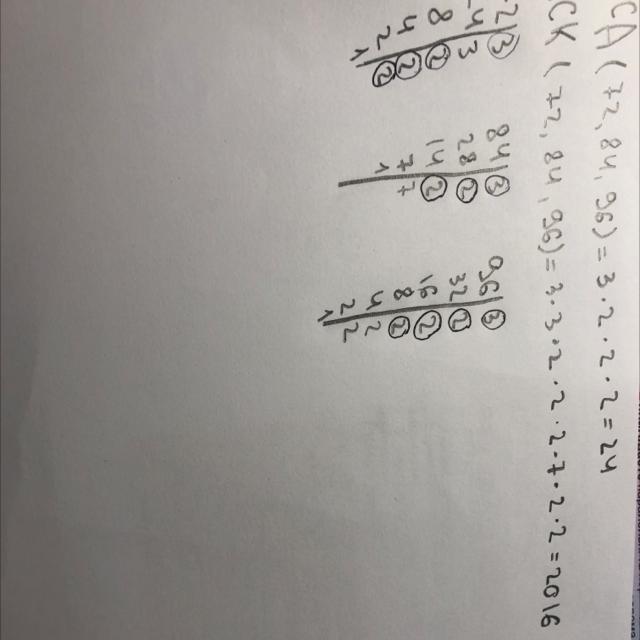 CA (72, 84, 96) = 3·2·2·2 = 24
CK (72, 84, 96) = 3·3·2·2·2·7·2·2 = 2016
2 3
24 3
8 2
4 2
2 2
1
84 3
28 2
14 2
7 7
1
96 3
32 2
16 2
8 2
4 2
2 2
1